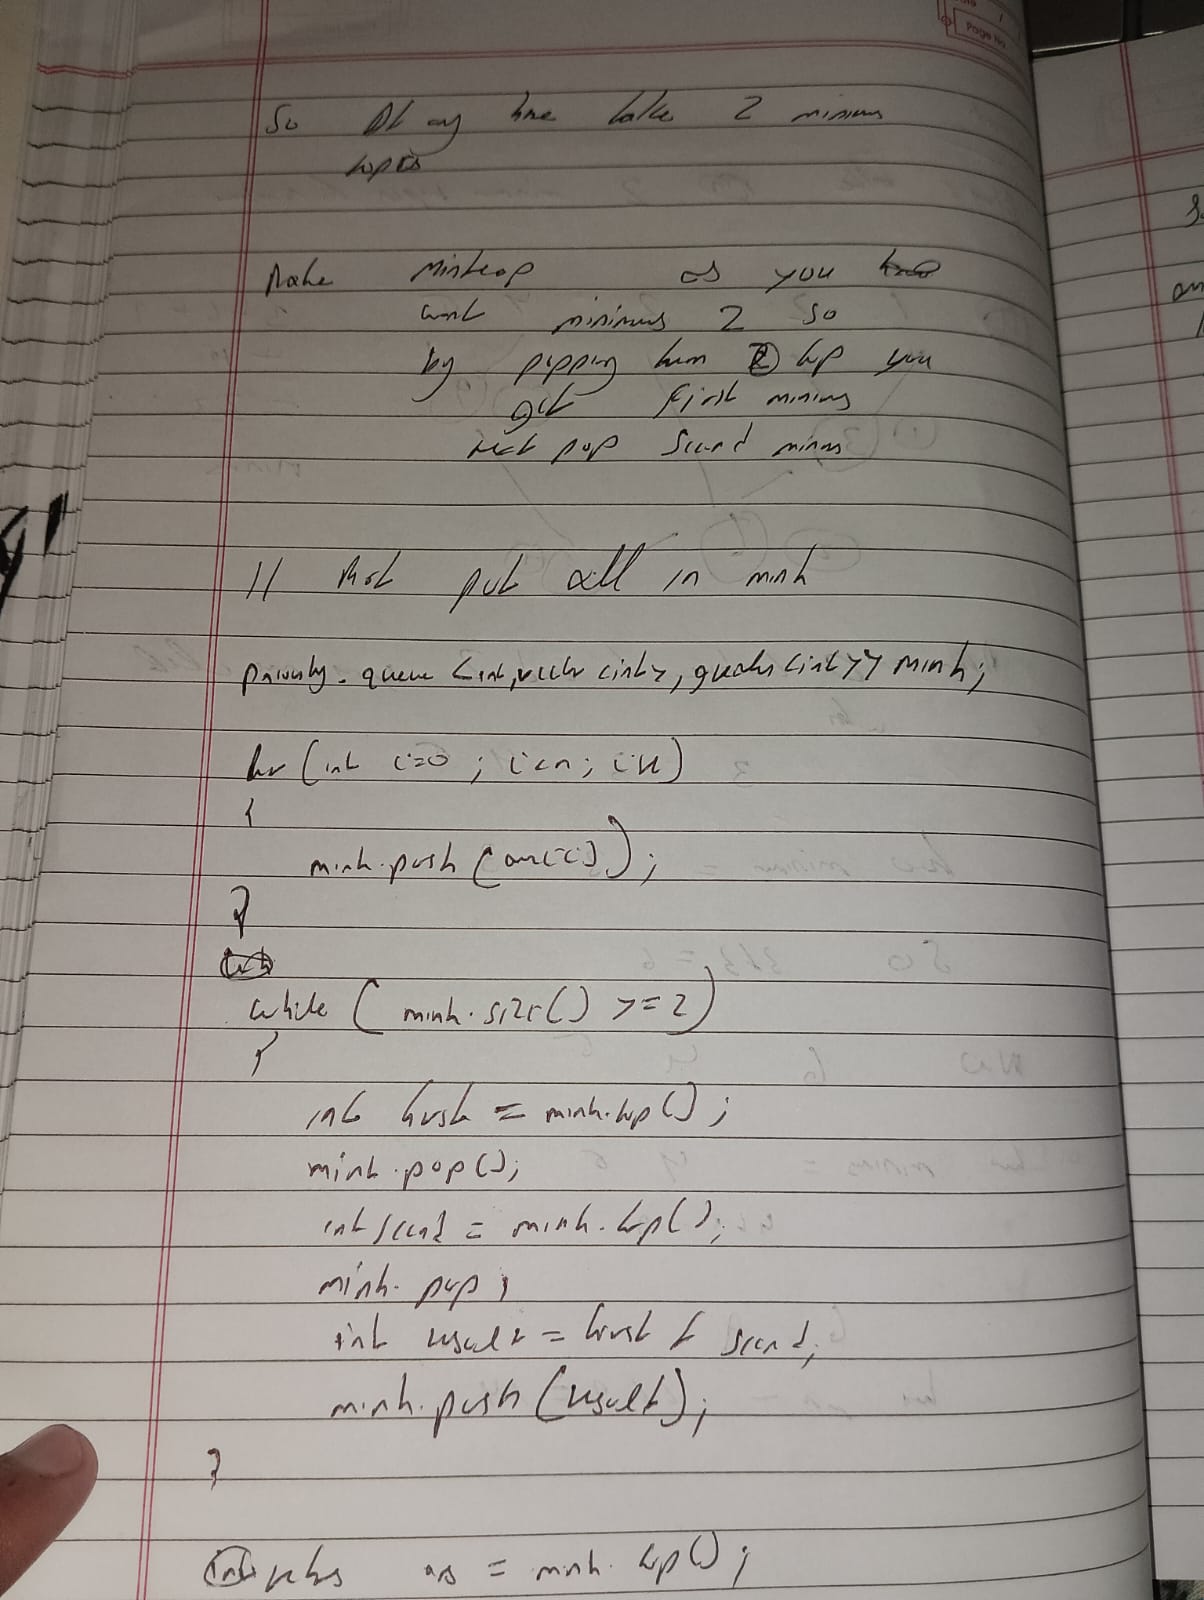 Page No
So At any time take 2 minimum
ropes
Make Minheap as you
want minimum 2 so
by popping from top you
get first minimum
next pop second minimum
// first put all in minh
priority_queue <int, vector<int>, greater<int>> minh;
for (int i=0 ; i<n ; i++)
{
minh.push (arr[i]);
}
while ( minh.size() >= 2)
{
int first = minh.top();
minh.pop();
int second = minh.top();
minh.pop;
int result = first + second;
minh.push (result);
}
ans = minh.top();